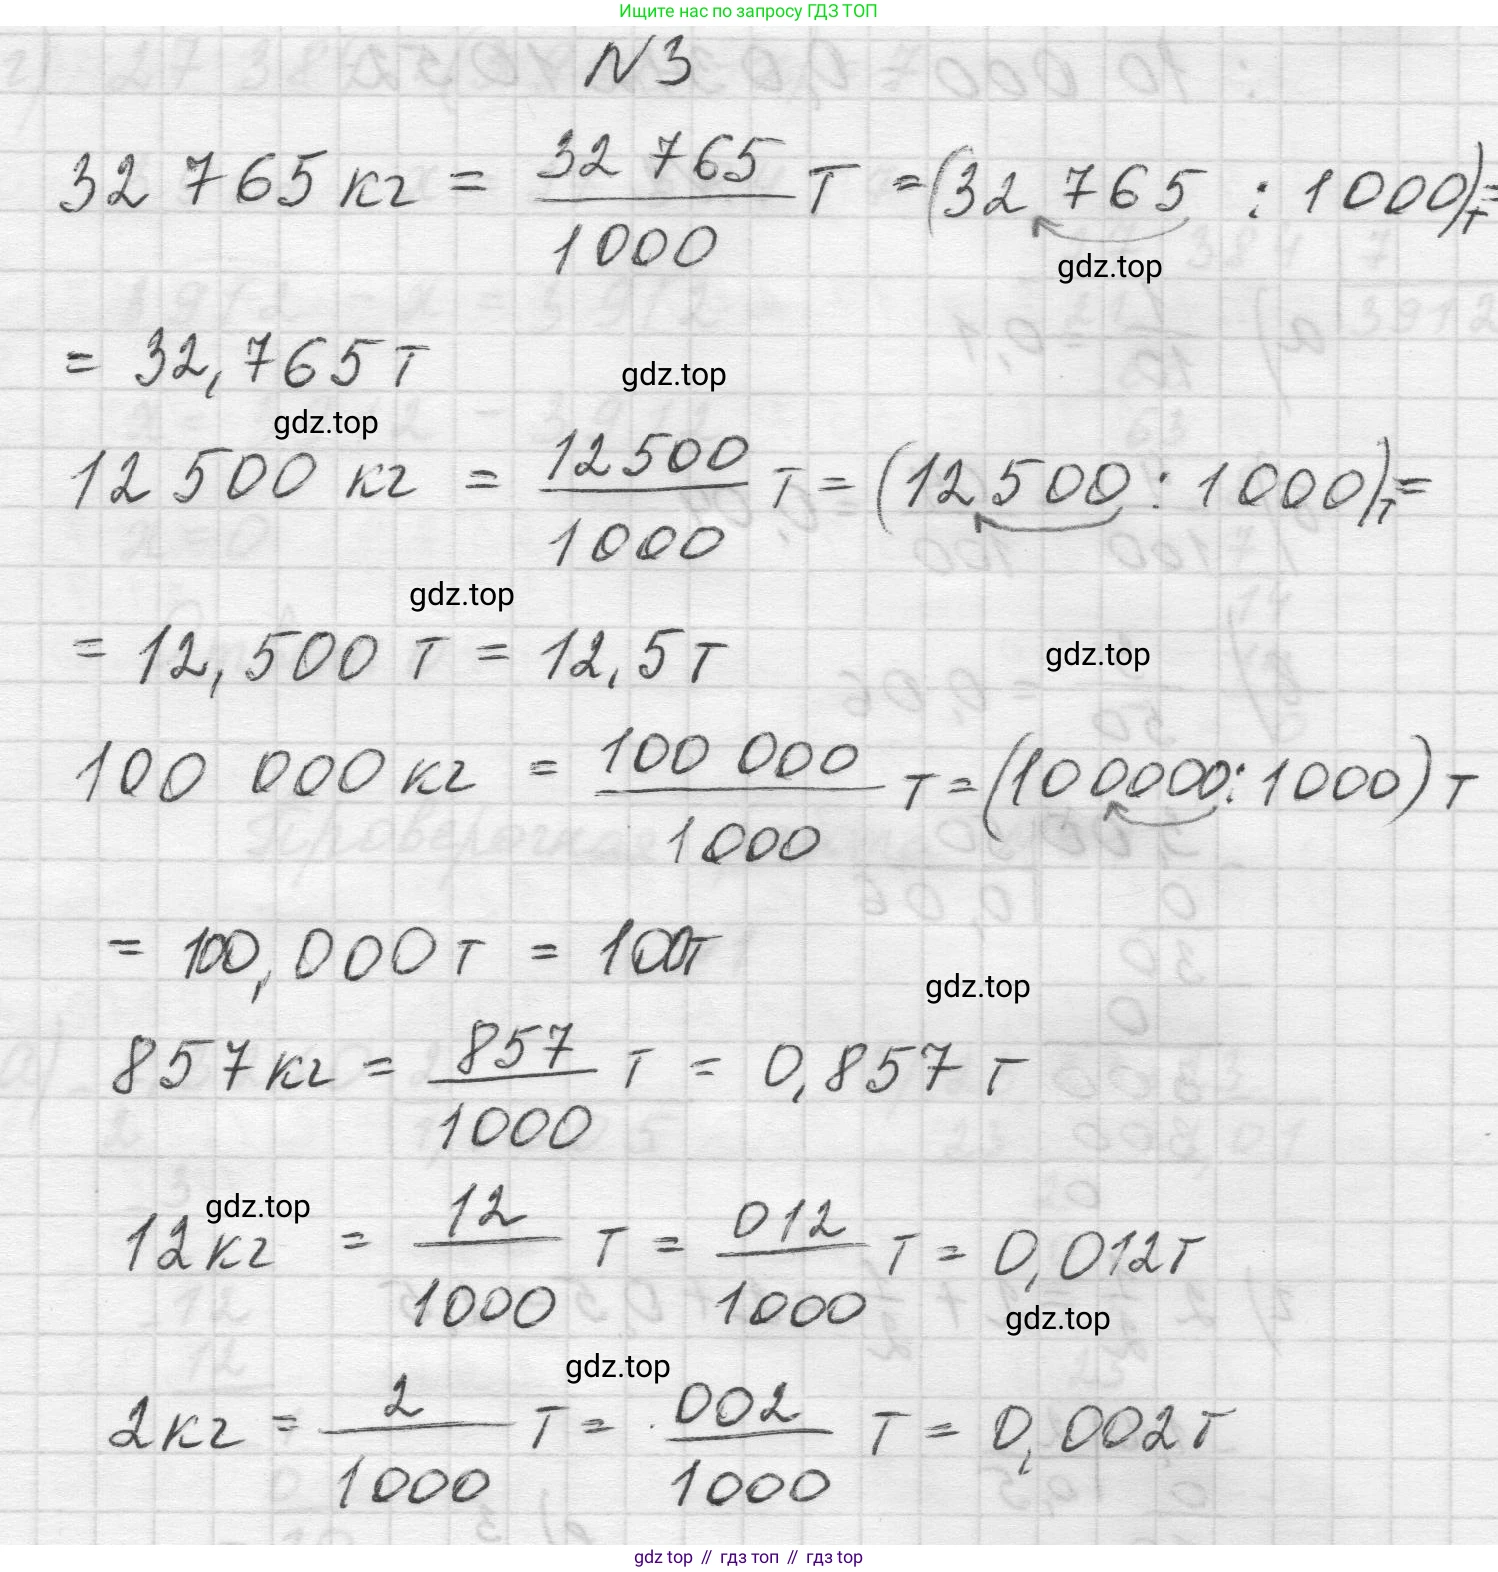 Ищите нас по запросу ГДЗ ТОП
N3
32 765 кг = 32 765/1000 т = (32 765 : 1000)т =
gdz.top
= 32,765 т
gdz.top
gdz.top
12 500 кг = 12500/1000 т = (12500 : 1000)т =
gdz.top
= 12,500 т = 12,5 т
gdz.top
100 000 кг = 100 000/1000 т = (100000 : 1000) т
= 100,000 т = 100т
gdz.top
857 кг = 857/1000 т = 0,857 т
gdz.top
12 кг = 12/1000 т = 012/1000 т = 0,012т
gdz.top
gdz.top
2 кг = 2/1000 т = 002/1000 т = 0,002т
gdz top // гдз топ // гдз top